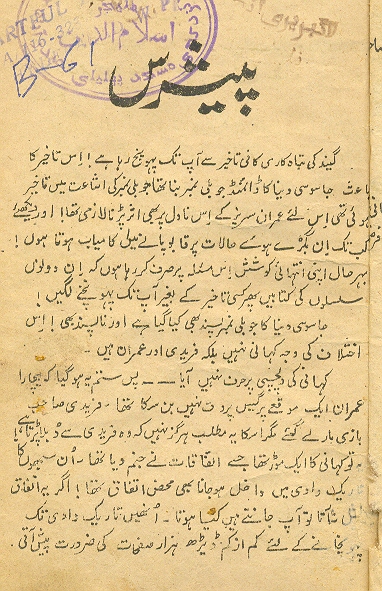 B-61
اسلام الدین
پیشرس
گیند کی تباہ کاری کافی تاخیر سے آپ تک پہونچ رہا ہے! اس تاخیر کا
باعث جاسوسی دنیا کا ڈائمنڈ جوبلی نمبر بنا تھا جوبلی نمبر کی اشاعت میں تاخیر
ہوئی تھی اس لئے عمران سیریز کے اس ناول پر بھی اثر پڑنا لازمی تھا! اور دیکھئے
کب تک ان بگڑے ہوئے حالات پر قابو پانے میں کامیاب ہوتا ہوں!
بہرحال اپنی انتہائی کوشش اس مسئلہ پر صرف کر رہا ہوں کہ ان دونوں
سلسلوں کی کتابیں پھر کسی تاخیر کے بغیر آپ تک پہونچنے لگیں!
جاسوسی دنیا کا جوبلی نمبر پسند بھی کیا گیا ہے اور ناپسند بھی! اس
اختلاف کی وجہ کہانی نہیں بلکہ فریدی اور عمران ہیں۔
کہانی کی دلچسپی پر حرف نہیں آیا ـــ بس ستم یہ ہو گیا کہ بیچارا
عمران ایک موقعے پر گیس پروف نہیں بن سکا تھا۔ فریدی صاحب
بازی مار لے گئے مگر اسکا یہ مطلب ہرگز نہیں کہ وہ فریدی سے دبا پڑتا ہے!
یہ تو کہانی کا ایک موڑ تھا جسے اتفاقات نے جنم دیا تھا۔ اُن سبھوں کا
تاریک وادی میں داخل ہو جانا بھی محض اتفاق تھا! اگر یہ اتفاق
نہ ہوتا تو آپ جانتے ہیں کیا ہوتا۔ اُنھیں تاریک وادی تک
پہونچانے کے لئے کم از کم ڈیڑھ ہزار صفحات کی ضرورت پیش آتی۔